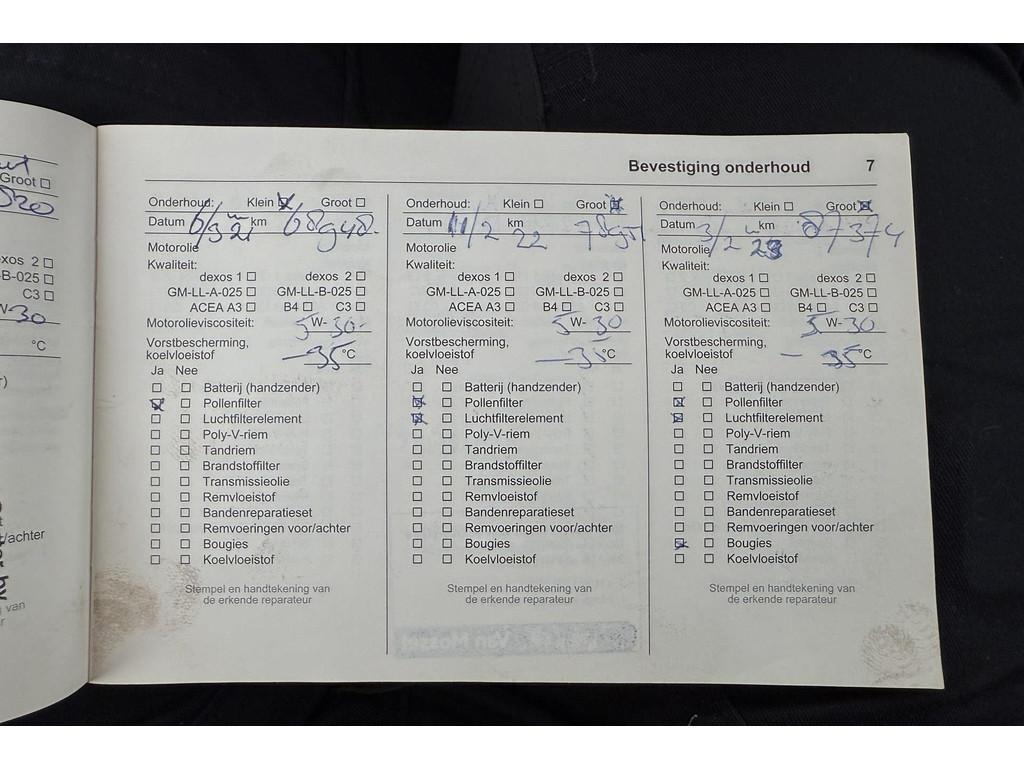 Groot
820
xos 2
L-B-025
C3
W-30
°C
/achter
g van
Bevestiging onderhoud 7
Onderhoud: Klein Groot
Datum 6/3 21 km 68948
Motorolie
Kwaliteit:
dexos 1 dexos 2
GM-LL-A-025 GM-LL-B-025
ACEA A3 B4 C3
Motorolieviscositeit: 5W-30
Vorstbescherming,
koelvloeistof -35°C
Ja Nee
Batterij (handzender)
Pollenfilter
Luchtfilterelement
Poly-V-riem
Tandriem
Brandstoffilter
Transmissieolie
Remvloeistof
Bandenreparatieset
Remvoeringen voor/achter
Bougies
Koelvloeistof
Stempel en handtekening van
de erkende reparateur
Onderhoud: Klein Groot
Datum 11/2 km 22
Motorolie
Kwaliteit:
dexos 1 dexos 2
GM-LL-A-025 GM-LL-B-025
ACEA A3 B4 C3
Motorolieviscositeit: 5W-30
Vorstbescherming,
koelvloeistof -35°C
Ja Nee
Batterij (handzender)
Pollenfilter
Luchtfilterelement
Poly-V-riem
Tandriem
Brandstoffilter
Transmissieolie
Remvloeistof
Bandenreparatieset
Remvoeringen voor/achter
Bougies
Koelvloeistof
Stempel en handtekening van
de erkende reparateur
Onderhoud: Klein Groot
Datum 3/2 km 87374
Motorolie 23
Kwaliteit:
dexos 1 dexos 2
GM-LL-A-025 GM-LL-B-025
ACEA A3 B4 C3
Motorolieviscositeit: 5W-30
Vorstbescherming,
koelvloeistof - 35°C
Ja Nee
Batterij (handzender)
Pollenfilter
Luchtfilterelement
Poly-V-riem
Tandriem
Brandstoffilter
Transmissieolie
Remvloeistof
Bandenreparatieset
Remvoeringen voor/achter
Bougies
Koelvloeistof
Stempel en handtekening van
de erkende reparateur